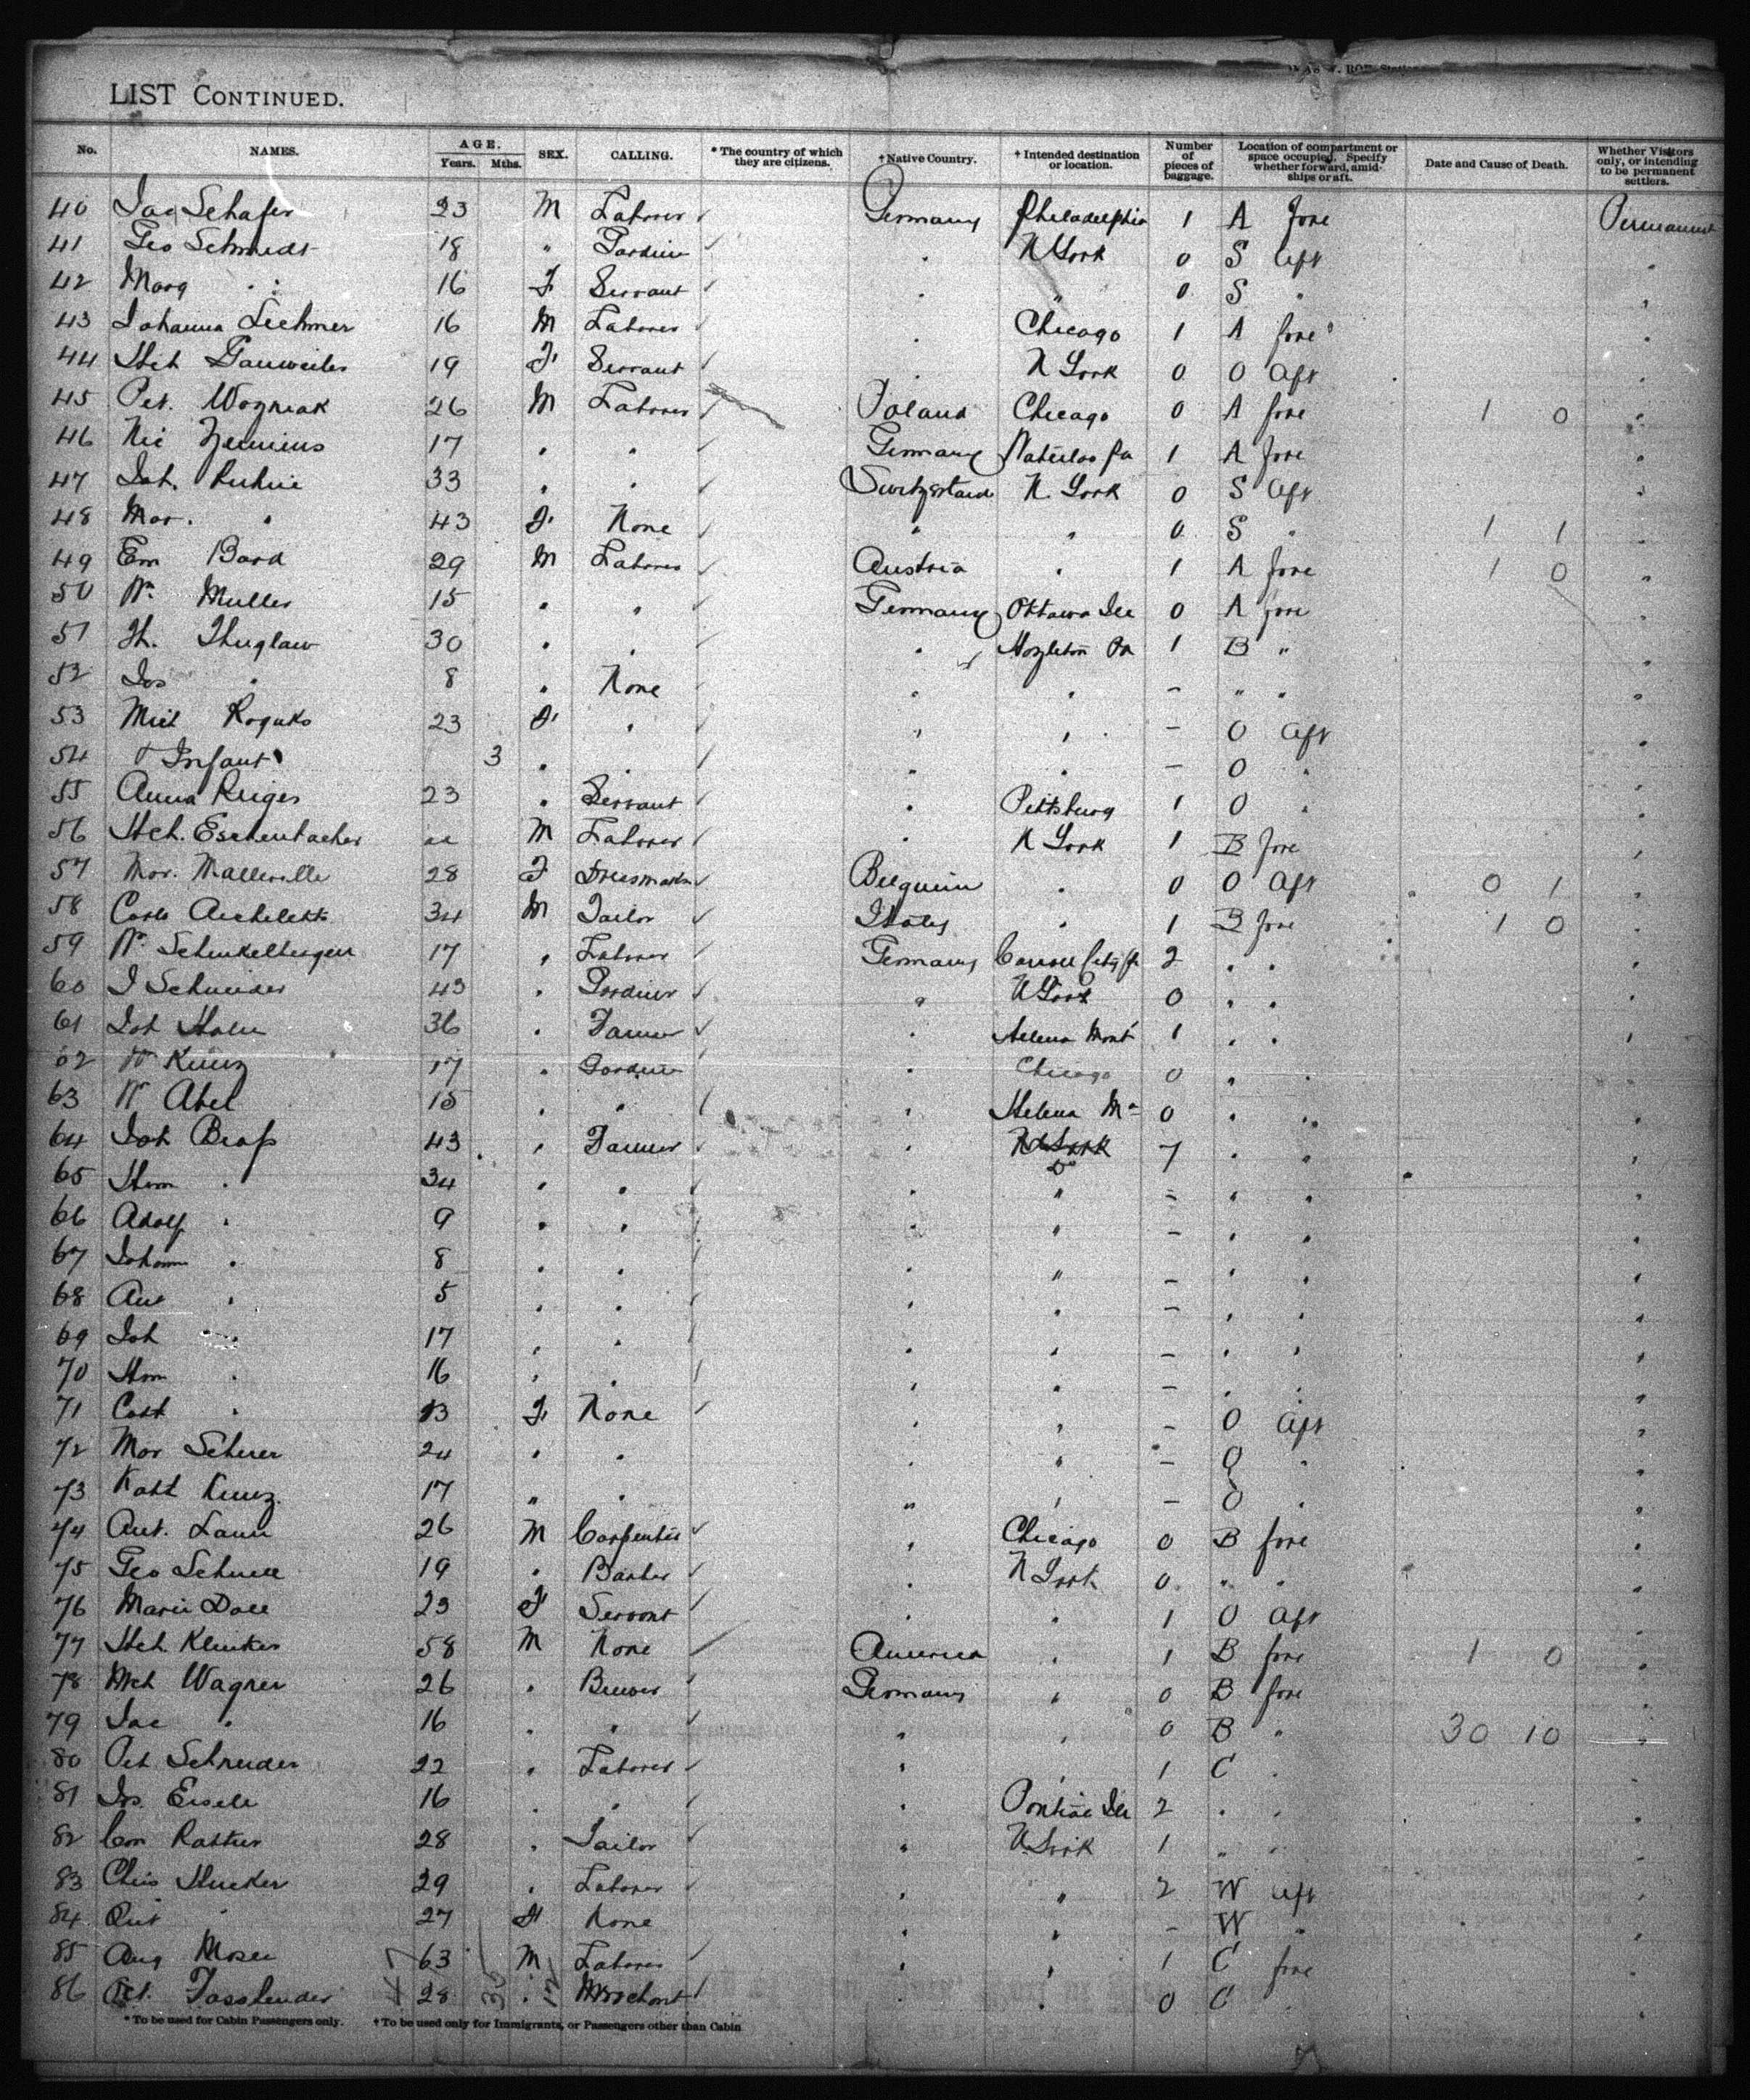 LIST CONTINUED.
No. NAMES. AGE. Years. Mths. SEX. CALLING. * The country of which they are citizens. † Native Country. † Intended destination or location. Number of pieces of baggage. Location of compartment or space occupied. Specify whether forward, amidships or aft. Date and Cause of Death. Whether Visitors only, or intending to be permanent settlers.
40 Jac Schafer 23 M Laborer Germany Philadelphia 1 A fore Permanent
41 Geo Schmidt 18 " N York 0 S aft
42 Marg " 16 F Servant " " 0 S "
43 Johanna 16 M Laborer Chicago 1 A fore
44 Hch 19 F Servant N York 0 O Aft
45 Pet. Wozniak 26 M Laborer Poland Chicago 0 A fore 1 0
46 Nic 17 " " Germany Waterloo 1 A fore
47 Joh. 33 " " Switzerland N. York 0 S aft
48 Mar. " 43 F None " " 0 S " 1 1
49 Em Bard 29 M Laborer Austria " 1 A fore 1 0
50 Wm Muller 15 " " Germany Ottawa Ill 0 A fore
51 Th. 30 " " " Hazleton Pa 1 B "
52 Jos " 8 " None " " - " "
53 23 F " " " - O aft
54 & Infant 3 " " " " - O "
55 Anna 23 " Servant " Pittsburg 1 O "
56 Hch. Eschenbacher M Laborer " N York 1 B fore
57 Mar. Malleville 28 F Dressmaker Belgium " 0 O aft 0 1
58 Carlo 34 M Tailor Italy " 1 B fore 1 0
59 Wm Schinkelberger 17 " Laborer Germany 2 " "
60 J Schneider 43 " " N York 0 " "
61 Joh 36 " Farmer " Helena Mont 1 " "
62 W Kunz 17 " " Chicago 0 " "
63 W Abel 15 " " " Helena 0 " "
64 Joh 43 " Farmer " N York Do 7 " "
65 Herm " 34 " " " " - " "
66 Adolf " 9 " " " " - " "
67 Johann " 8 " " " " - " "
68 " 5 " " " " - " "
69 Joh " 17 " " " " - " "
70 Herm " 16 " " " " - " "
71 Cath " 13 F None " " - O aft
72 Mar Scherer 24 " " " " - O "
73 Kath Kunz. 17 " " " " - O "
74 Ant. 26 M Carpenter " Chicago 0 B fore
75 Geo Schnell 19 " Barber " N York 0 " "
76 Marie Doll 23 F Servant " " 1 O aft
77 Hch Klinker 58 M None America " 1 B fore 1 0
78 Mch Wagner 26 " Brewer Germany " 0 B fore
79 Jac " 16 " " " " 0 B " 30 10
80 Pet Schneider 22 " Laborer " " 1 C "
81 Jos. Eisele 16 " " " Pontiac Ill 2 " "
82 28 " Tailor " N York 1 " "
83 Chris 29 " Laborer " " 2 W aft
84 " 27 F None " " - W "
85 Aug Moser 63 M Laborer " " 1 C fore
86 Pet. Fassbender 28 " Merchant " " 0 C "
* To be used for Cabin Passengers only. † To be used only for Immigrants, or Passengers other than Cabin